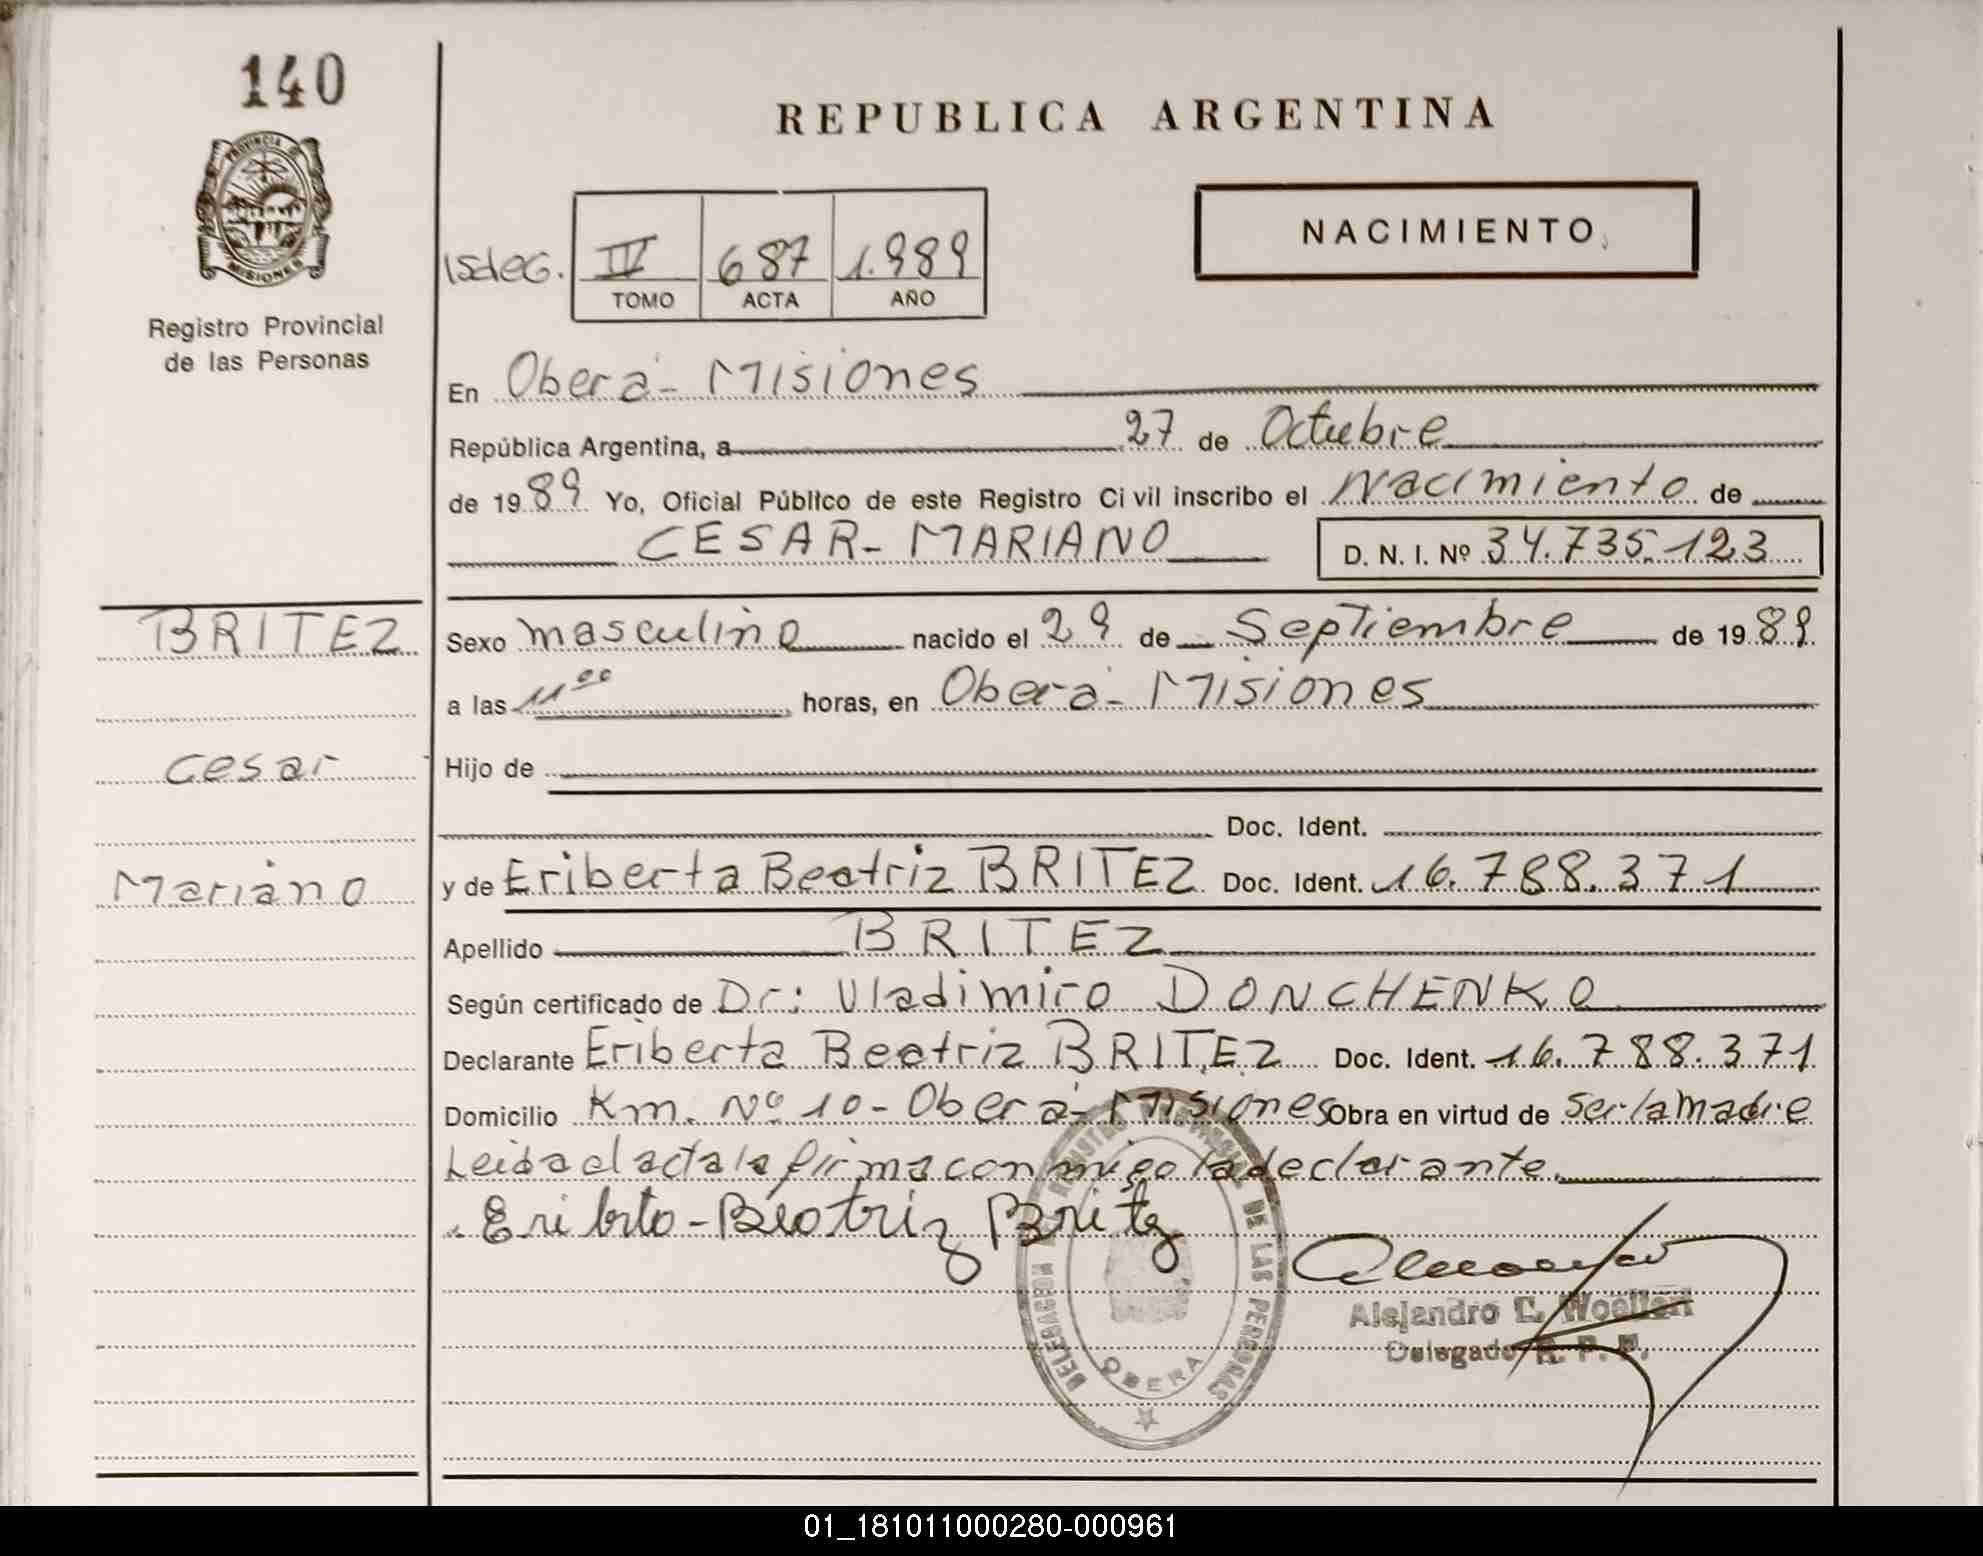 140
REPUBLICA ARGENTINA
PROVINCIA DE
MISIONES
Registro Provincial
de las Personas
NACIMIENTO
IV 687 1.989
TOMO ACTA AÑO
En Oberá - Misiones
República Argentina, a 27 de Octubre
de 1989 Yo, Oficial Público de este Registro Civil inscribo el Nacimiento de
CESAR - MARIANO D. N. I. Nº 34.735.123
BRITEZ
Cesar
Mariano
Sexo masculino nacido el 29 de Septiembre de 1989
a las 11 00 horas, en Oberá - Misiones
Hijo de
Doc. Ident.
y de Eriberta Beatriz BRITEZ Doc. Ident. 16.788.371
Apellido BRITEZ
Según certificado de Dr: Vladimiro DONCHENKO
Declarante Eriberta Beatriz BRITEZ Doc. Ident. 16.788.371
Domicilio Km. Nº 10 - Oberá - Misiones Obra en virtud de ser la madre
Leida el acta la firma conmigo la declarante.
Eribrto - Beotriz Britz
DE LAS PERSONAS
OBERA
Alejandro
Delegado R. P. P.
01_181011000280-000961